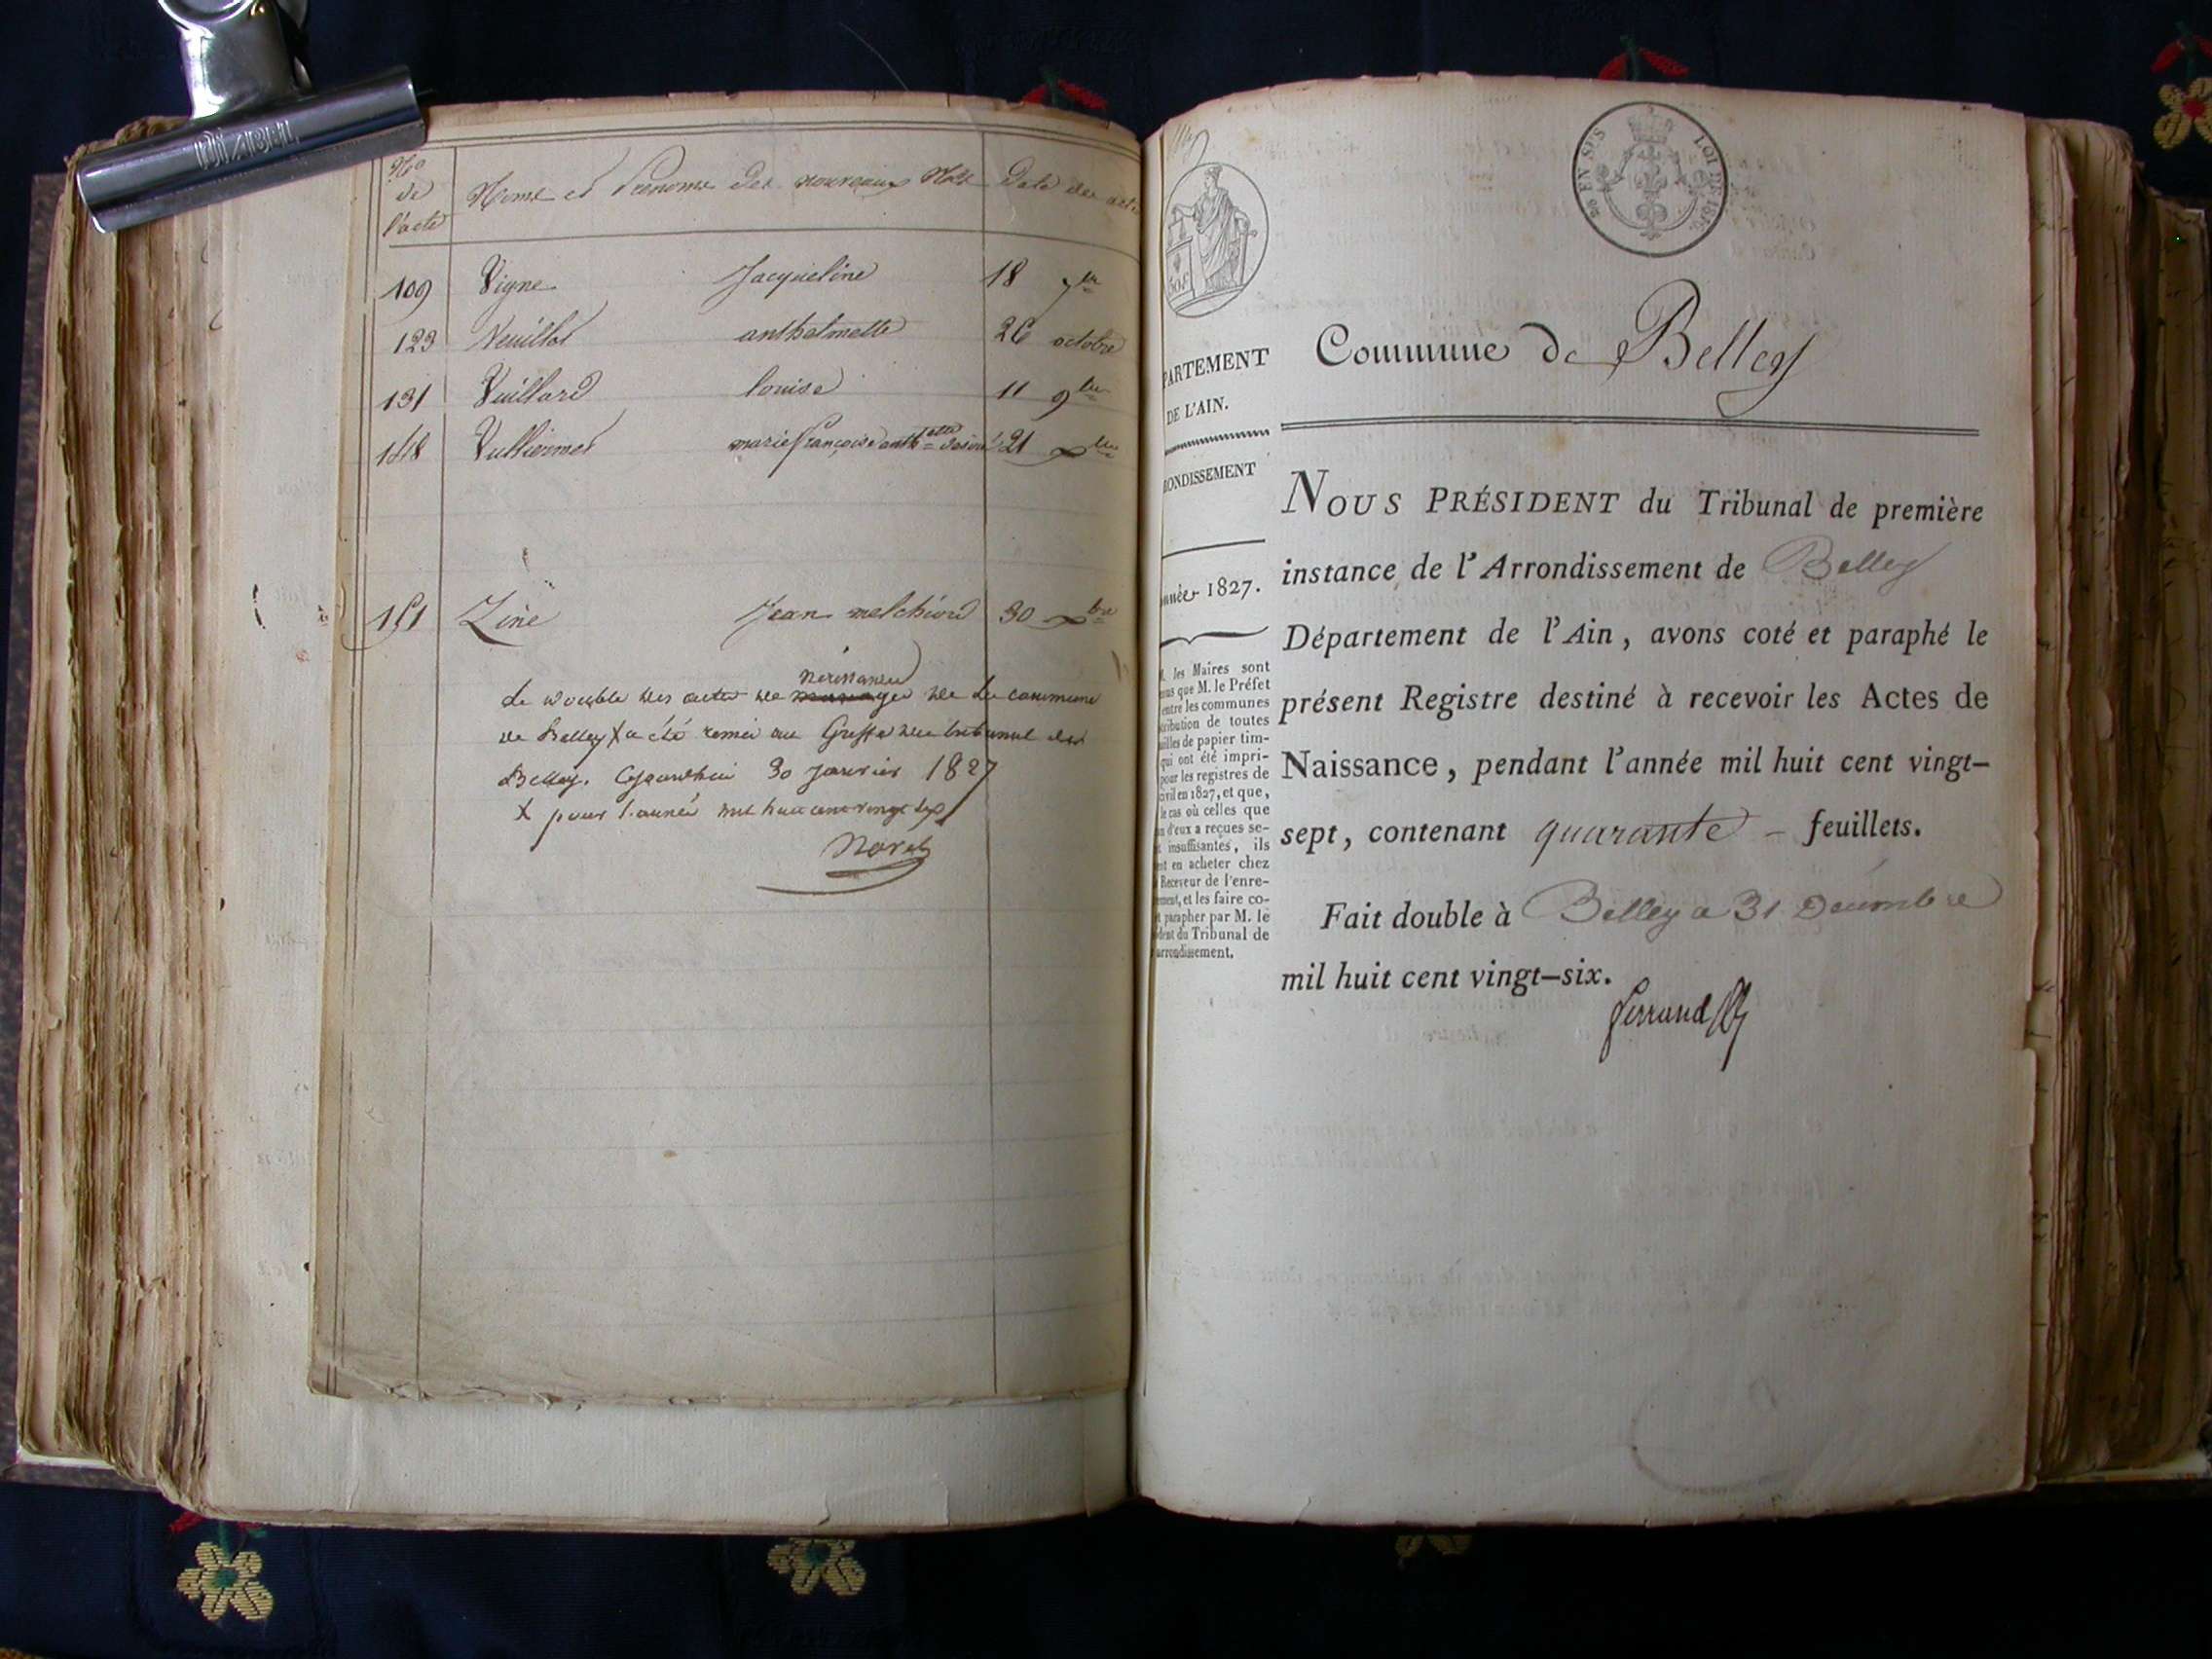 DIABEL
No
de
l'acte
Noms et Prénoms des nouveaux Nés
Date des actes
109 Vigne Jacqueline 18 7bre
123 Veuillot anthelmette 26 octobre
131 Vuillard louise 11 9bre
148 Vulliermet marie françoise anthette désiré 21 Xbre
151 Zine Jean melchiord 30 Xbre
naissances
Le double des actes de mariages de la commune
de Belley X a été remis au Greffe du tribunal de
Belley. Cejourdhui 30 Janvier 1827
X pour l'année mil huit cent vingt six
Morel
50 c
EN SUS
LOI DE 1816
Commune de Belley
PARTEMENT
DE L'AIN.
RONDISSEMENT
nnée 1827.
M. les Maires sont
nus que M. le Préfet
entre les communes
tribution de toutes
uilles de papier tim-
qui ont été impri-
pour les registres de
civil en 1827, et que,
le cas où celles que
un d'eux a reçues se-
t insuffisantes, ils
ent en acheter chez
Receveur de l'enre-
ement, et les faire co-
et parapher par M. le
ident du Tribunal de
arrondissement.
NOUS PRÉSIDENT du Tribunal de première
instance de l'Arrondissement de Belley
Département de l'Ain, avons coté et paraphé le
présent Registre destiné à recevoir les Actes de
Naissance, pendant l'année mil huit cent vingt-
sept, contenant quarante - feuillets.
Fait double à Belley a 31 Décembre
mil huit cent vingt-six.
ferrand